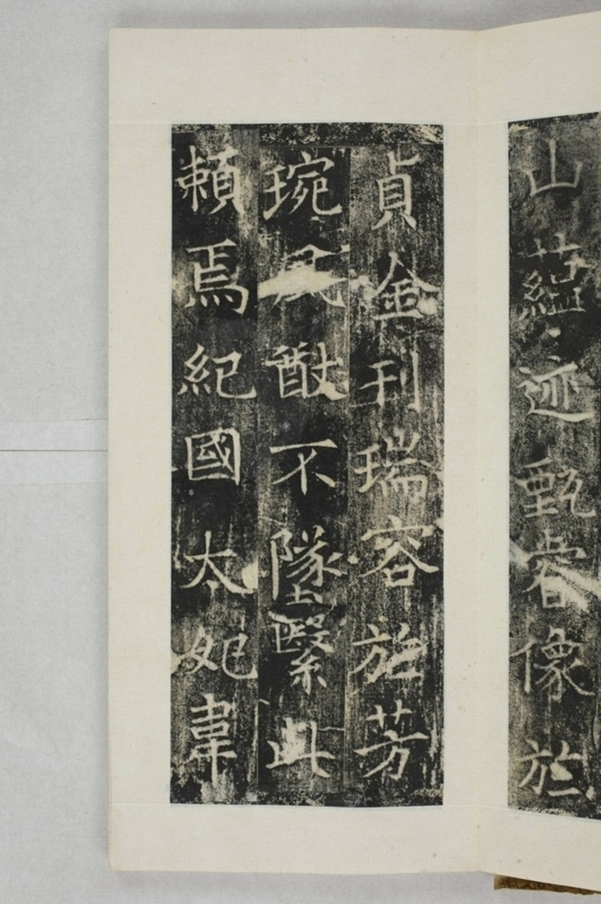 山蘊迹甄睿像於
貞金刊瑞容於芳
琬風猷不墜繄此
賴焉紀國太妃韋